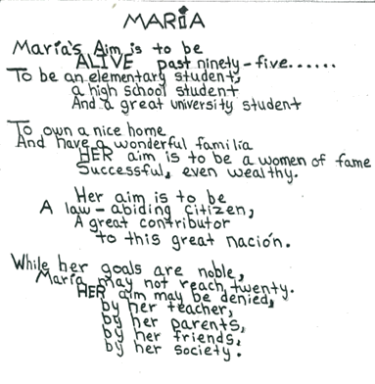 MARIA
María's Aim is to be
ALIVE past ninety-five......
To be an elementary student,
a high school student
And a great university student
To own a nice home
And have a wonderful familia
HER aim is to be a women of fame
Successful, even wealthy.
Her aim is to be
A law-abiding citizen,
A great contributor
to this great nación.
While her goals are noble,
María may not reach twenty.
HER aim may be denied,
by her teacher,
by her parents,
by her friends,
by her society.